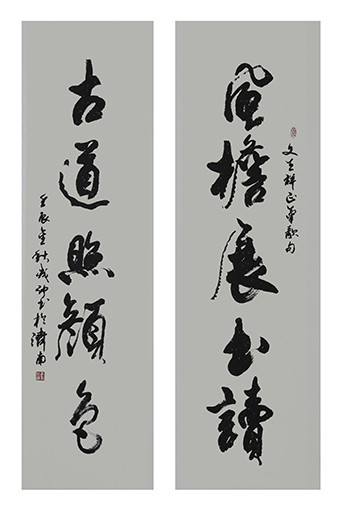 風檐展书讀
文天祥正氣歌句
古道照顔色
壬辰金秋成仲书於濟南